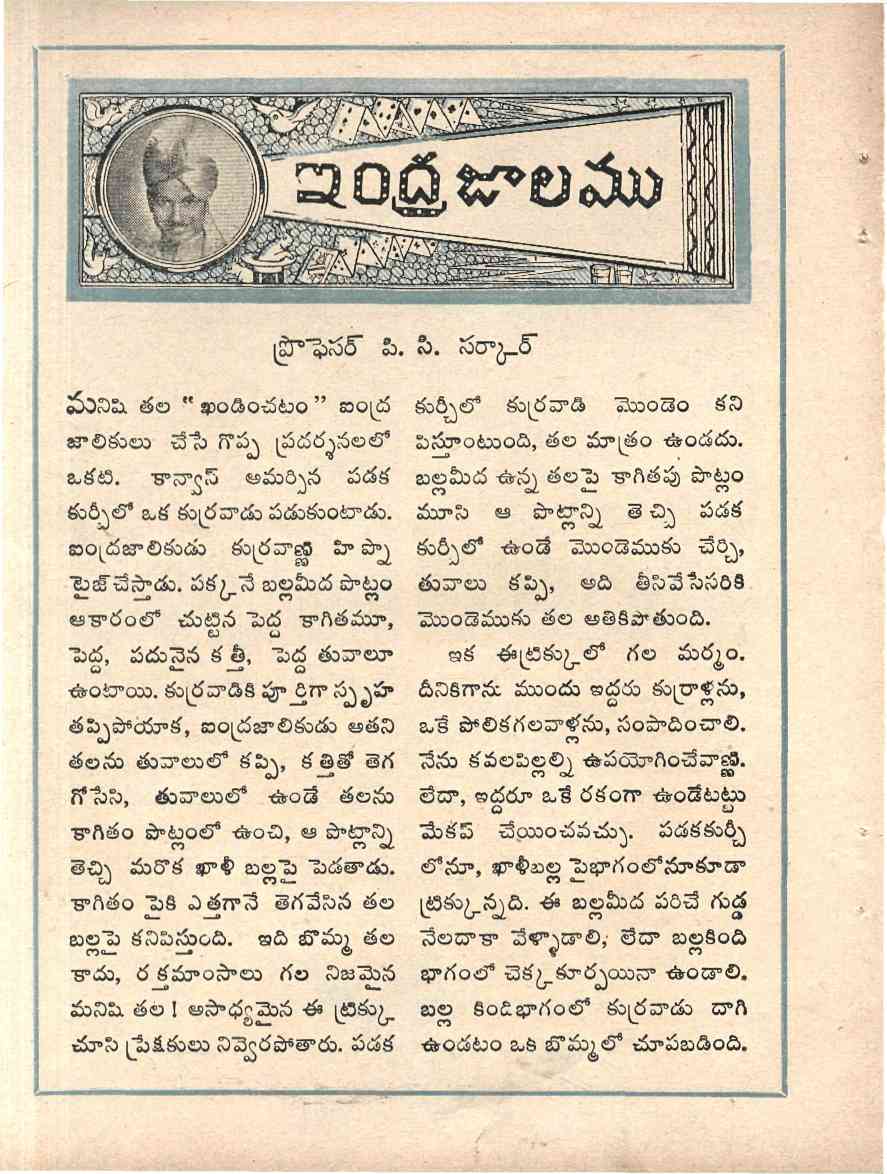 ఇంద్రజాలము
ప్రొఫెసర్ పి. సి. సర్కార్
మనిషి తల “ ఖండించటం ” ఐంద్ర
జాలికులు చేసే గొప్ప ప్రదర్శనలలో
ఒకటి. కాన్వాస్ అమర్చిన పడక
కుర్చీలో ఒక కుర్రవాడు పడుకుంటాడు.
ఐంద్రజాలికుడు కుర్రవాణ్ణి హిప్నా
టైజ్ చేస్తాడు. పక్కనే బల్లమీద పొట్లం
ఆకారంలో చుట్టిన పెద్ద కాగితమూ,
పెద్ద, పదునైన కత్తీ, పెద్ద తువాలూ
ఉంటాయి. కుర్రవాడికి పూర్తిగా స్పృహ
తప్పిపోయాక, ఐంద్రజాలికుడు అతని
తలను తువాలులో కప్పి, కత్తితో తెగ
గోసేసి, తువాలులో ఉండే తలను
కాగితం పొట్లంలో ఉంచి, ఆ పొట్లాన్ని
తెచ్చి మరొక ఖాళీ బల్లపై పెడతాడు.
కాగితం పైకి ఎత్తగానే తెగవేసిన తల
బల్లపై కనిపిస్తుంది. ఇది బొమ్మ తల
కాదు, రక్తమాంసాలు గల నిజమైన
మనిషి తల ! అసాధ్యమైన ఈ ట్రిక్కు
చూసి ప్రేక్షకులు నివ్వెరపోతారు. పడక
కుర్చీలో కుర్రవాడి మొండెం కని
పిస్తూంటుంది, తల మాత్రం ఉండదు.
బల్లమీద ఉన్న తలపై కాగితపు పొట్లం
మూసి ఆ పొట్లాన్ని తెచ్చి పడక
కుర్చీలో ఉండే మొండెముకు చేర్చి,
తువాలు కప్పి, అది తీసివేసేసరికి
మొండెముకు తల అతికిపోతుంది.
ఇక ఈట్రిక్కులో గల మర్మం.
దీనికిగాను ముందు ఇద్దరు కుర్రాళ్లను,
ఒకే పోలికగలవాళ్లను, సంపాదించాలి.
నేను కవలపిల్లల్ని ఉపయోగించేవాణ్ణి.
లేదా, ఇద్దరూ ఒకే రకంగా ఉండేటట్టు
మేకప్ చేయించవచ్చు. పడకకుర్చీ
లోనూ, ఖాళీబల్ల పైభాగంలోనూకూడా
ట్రిక్కున్నది. ఈ బల్లమీద పరిచే గుడ్డ
నేలదాకా వేళ్ళాడాలి; లేదా బల్లకింది
భాగంలో చెక్కకూర్పయినా ఉండాలి.
బల్ల కిందిభాగంలో కుర్రవాడు దాగి
ఉండటం ఒక బొమ్మలో చూపబడింది.